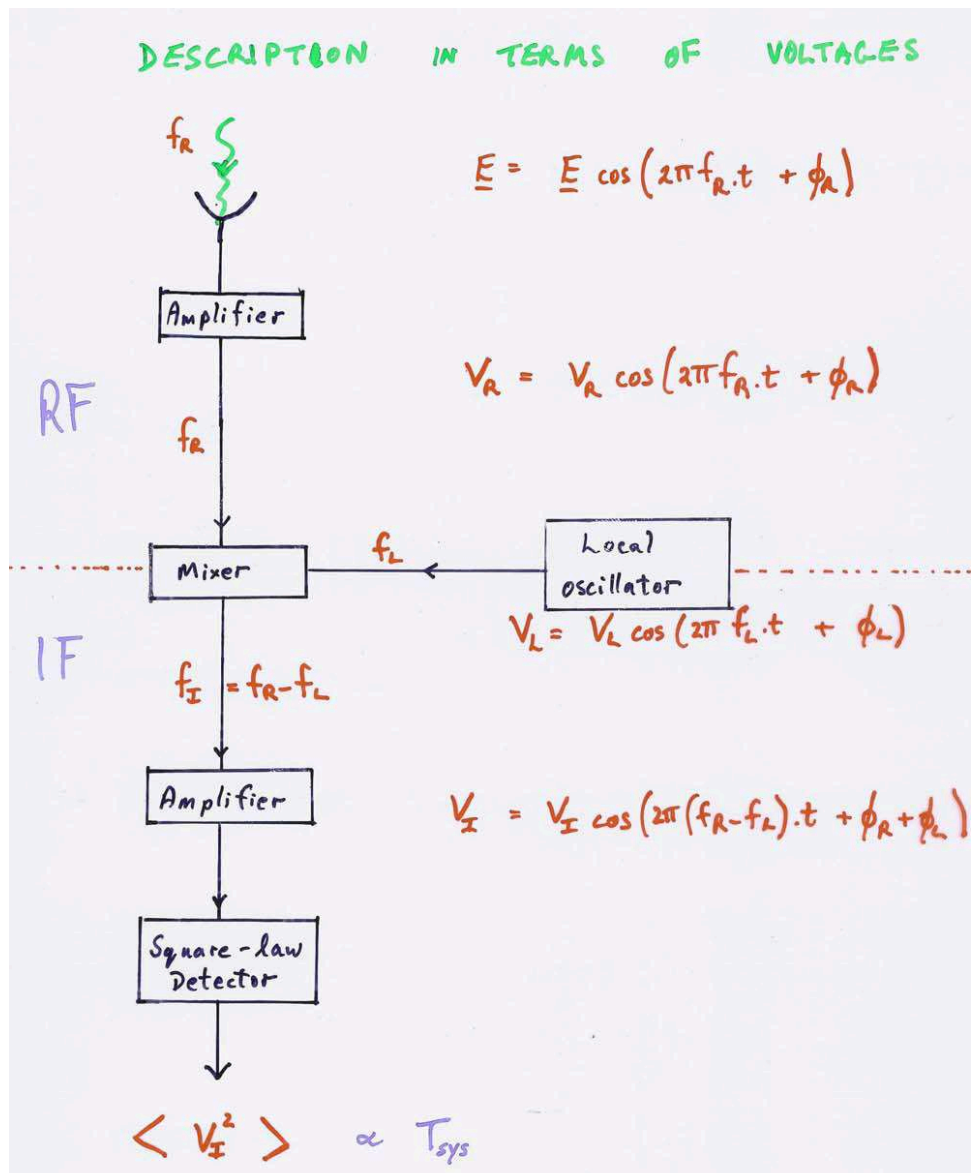 DESCRIPTION IN TERMS OF VOLTAGES
f_R
E = E cos(2πf_R.t + ϕ_R)
Amplifier
V_R = V_R cos(2πf_R.t + ϕ_R)
RF
f_R
Mixer
f_L
Local
oscillator
V_L = V_L cos(2π f_L.t + ϕ_L)
IF
f_I = f_R-f_L
Amplifier
V_I = V_I cos(2π(f_R-f_L).t + ϕ_R+ϕ_L)
Square-law
Detector
< V_I² > ∝ T_sys